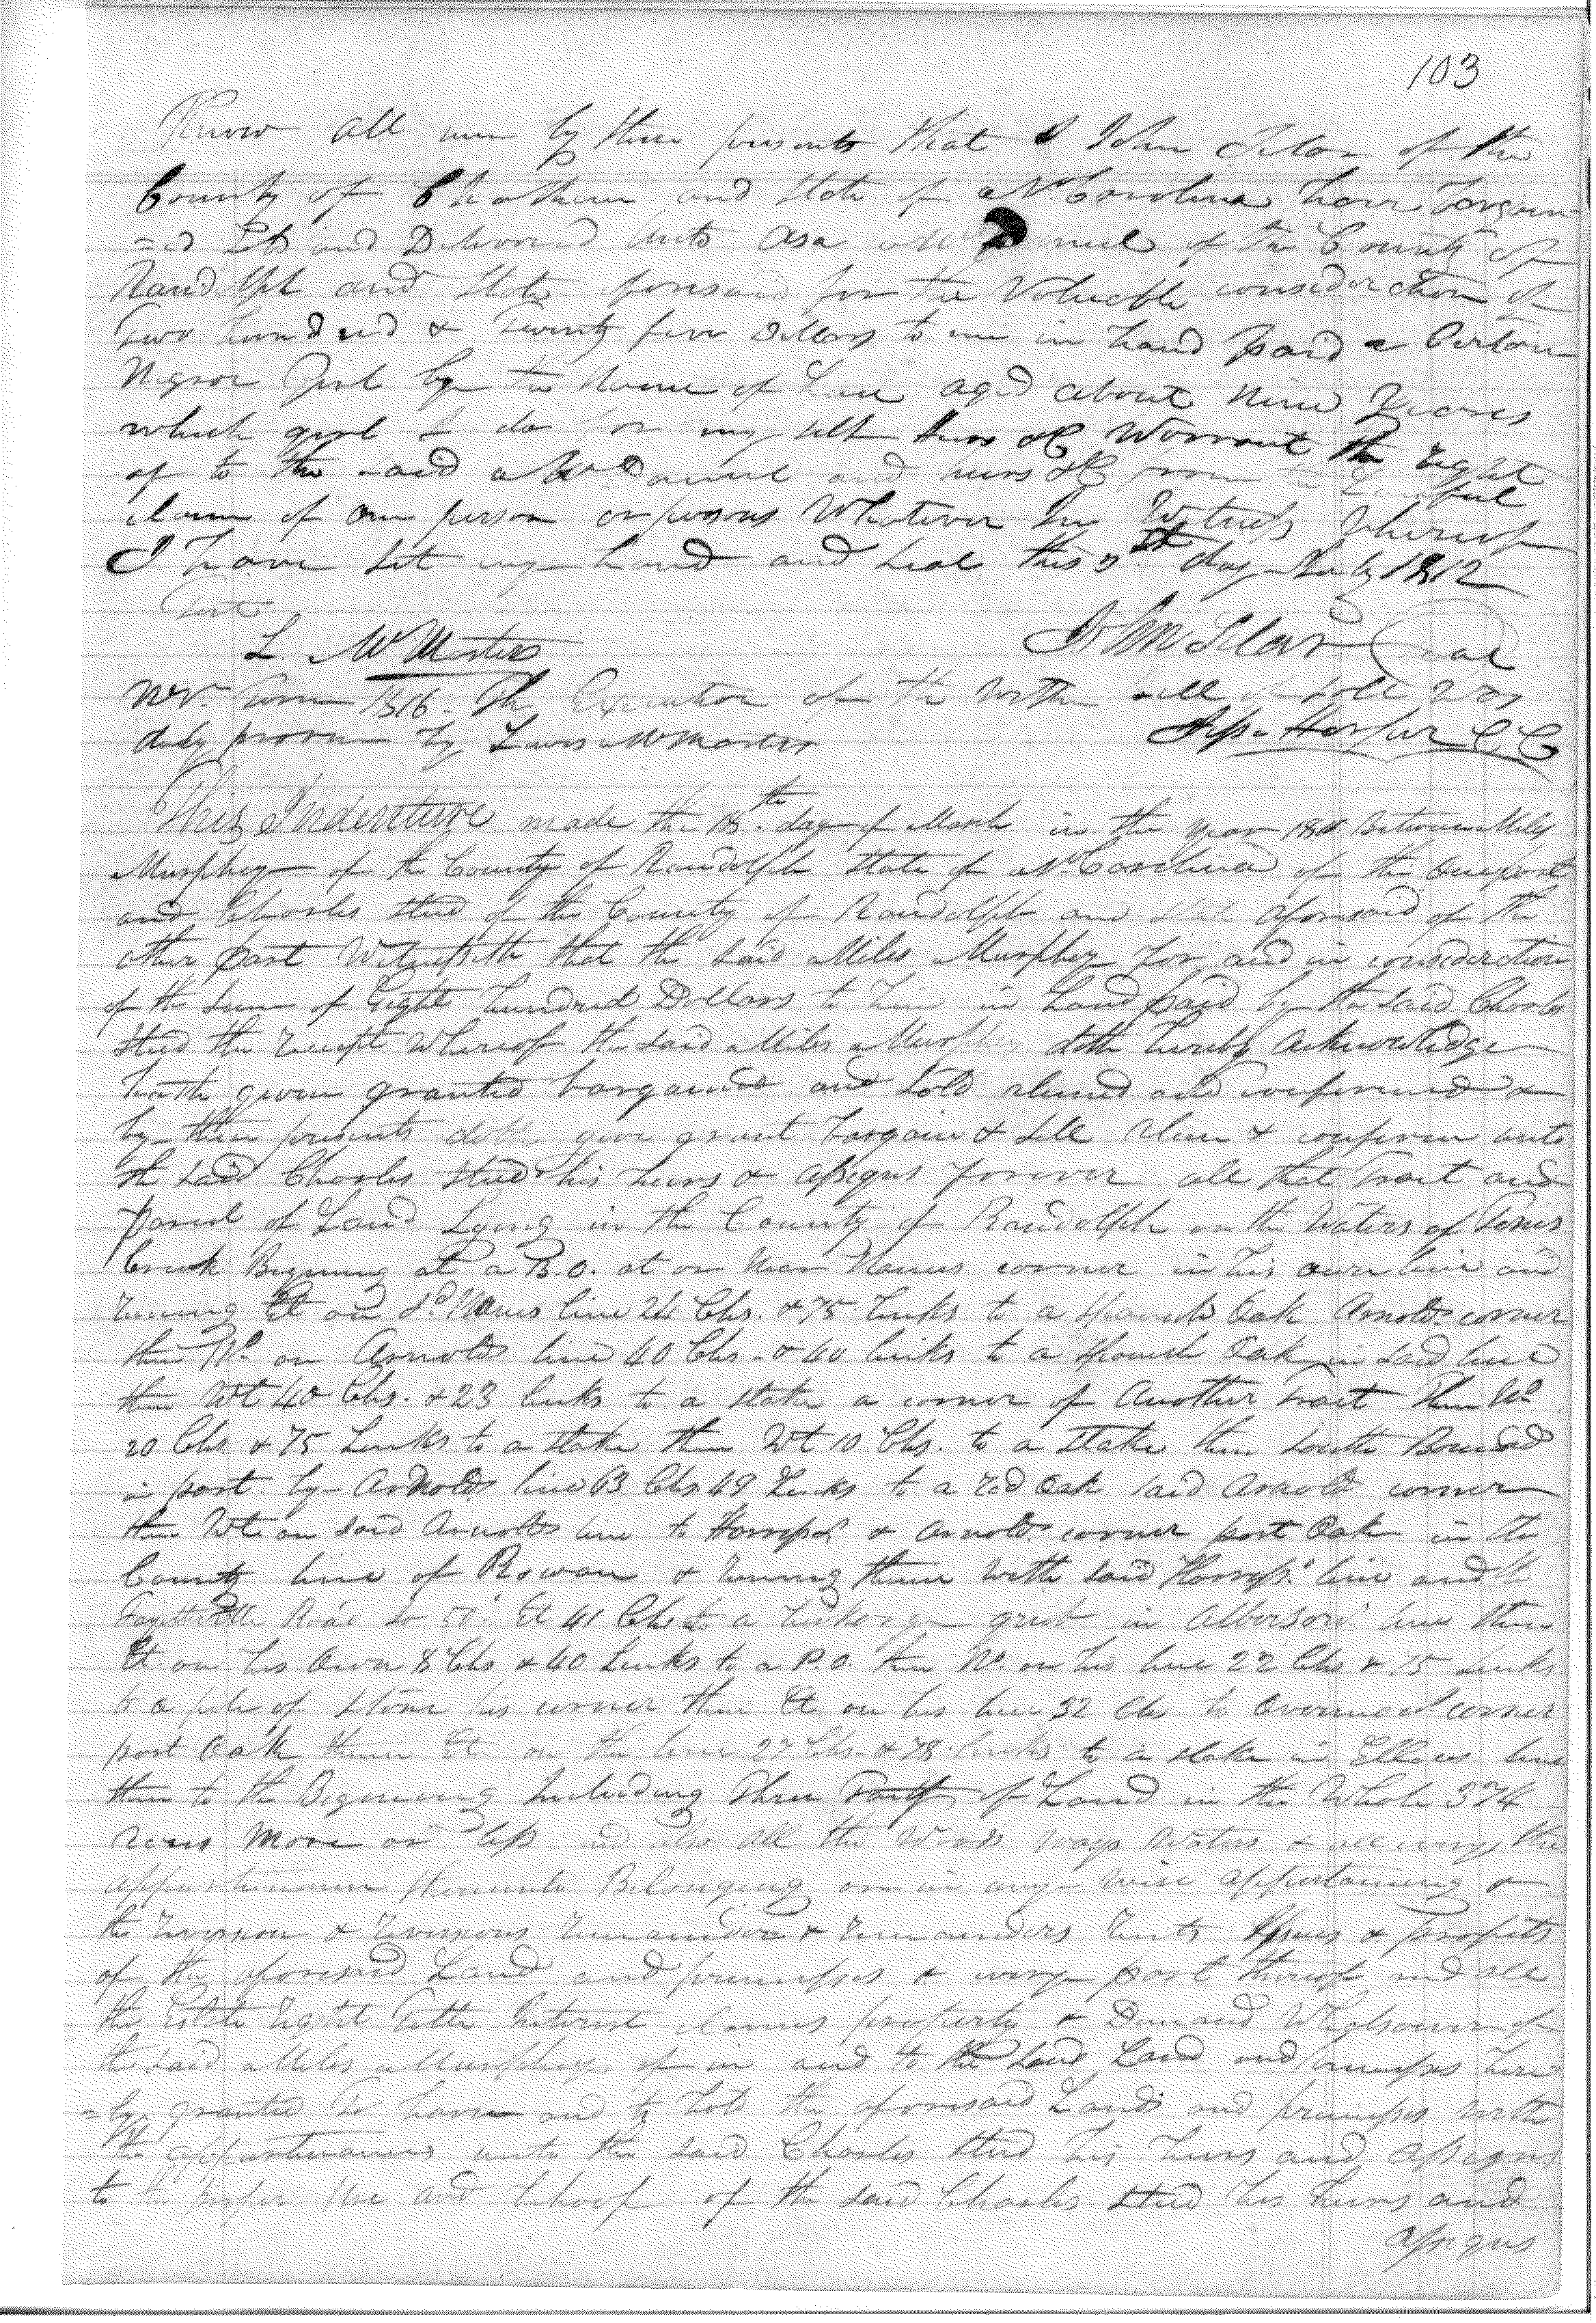 103
Know all men by these presents that I John Siler of the
County of Chatham and State of N. Carolina have bargain-
=ed Sold and Delivered unto Asa McDaniel of the County of
Randolph and State aforesaid for the Valuable consideration of
Two hundred & Twenty five Dollars to me in hand paid a Certain
Negroe Girl by the Name of aged about nine Years
which girl I do for my self heirs &C Warrant the right
of to the said McDaniel and heirs &C from the Lawful
claim of any person or persons Whatever In Witness Whereof
I have set my hand and seal this day July 1812
Test
L. McMasters John Siler Seal
Nov. Term 1816. The Execution of the within bill of sale was
duly proven by Lewis McMasters Jesse Harper CC
This Indenture made the 18th day of March in the year Between Miles
Murphey of the County of Randolph State of N. Carolina of the One part
and Charles Steed of the County of Randolph and State aforesaid of the
other part Witnesseth that the said Miles Murphey for and in consideration
of the Sum of Eight hundred Dollars to him in hand paid by the said Charles
Steed the receipt Whereof the said Miles Murphey doth hereby Acknowledge
hath given granted bargained and Sold aliened and confirmed &
by these presents doth give grant bargain & sell alien & confirm unto
the said Charles Steed his heirs & assigns forever all that Tract and
parcel of Land Lying in the County of Randolph on the Waters of
Creek Begining at a B.O. at or Near corner in his own line and
runing Et on Sd. line 24 Chs. & 75 Links to a Spanish Oak Arnolds corner
then No. on Arnolds line 40 Chs. & 40 links to a Spanish Oak in said line
then Wt 40 Chs. & 23 links to a stake a corner of Another Tract Then No.
20 Chs. & 75 Links to a stake then Wt 10 Chs. to a stake then South Bounded
in part by Arnolds line 63 Chs 49 Links to a red Oak said Arnold corner
then Wt on said Arnolds line to & Arnolds corner post Oak in the
County line of Rowan & runing thence with said line and the
Fayetteville Road So 50° Et 41 Chs to a hickory grub in Albersons line then
Et on his Own 8 Chs & 40 Links to a P.O. then No. on his line 22 Chs & 15 Links
to a pile of Stone his corner then Et on his line 32 Chs to corner
post Oak thence Et on the line 27 Chs. & 78 links to a stake in line
then to the Begining Including Three Tracts of Land in the Whole 374
Acres More or less and also all the Woods ways Waters & all every the
appurtenances thereunto Belonging or in any Wise appertaining &
the reversion & reversions remainder & remainders rents Issues & profits
of the aforesaid Land and premisses & every part thereof and all
the Estate right Title Interest claims property & Demand Whatsoever of
the said Miles Murphey of in and to the said Land and premisses here-
=by granted To have and to hold the aforesaid Lands and premisses with
the appurtenances unto the said Charles Steed his heirs and assigns
to the proper Use and behoof of the said Charles Steed his heirs and
assigns